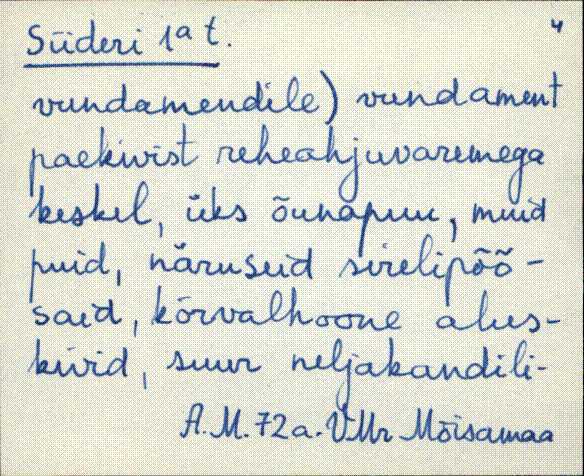 Süderi 1a t.
4
vundamendile) vundament
paekivist reheahjuvaremega
keskel, üks õunapuu, muid
puid, näruseid sirelipõõ-
said, kõrvalhoone alus-
kivid, suur neljakandili-
A.M.72a. VMr Mõisamaa